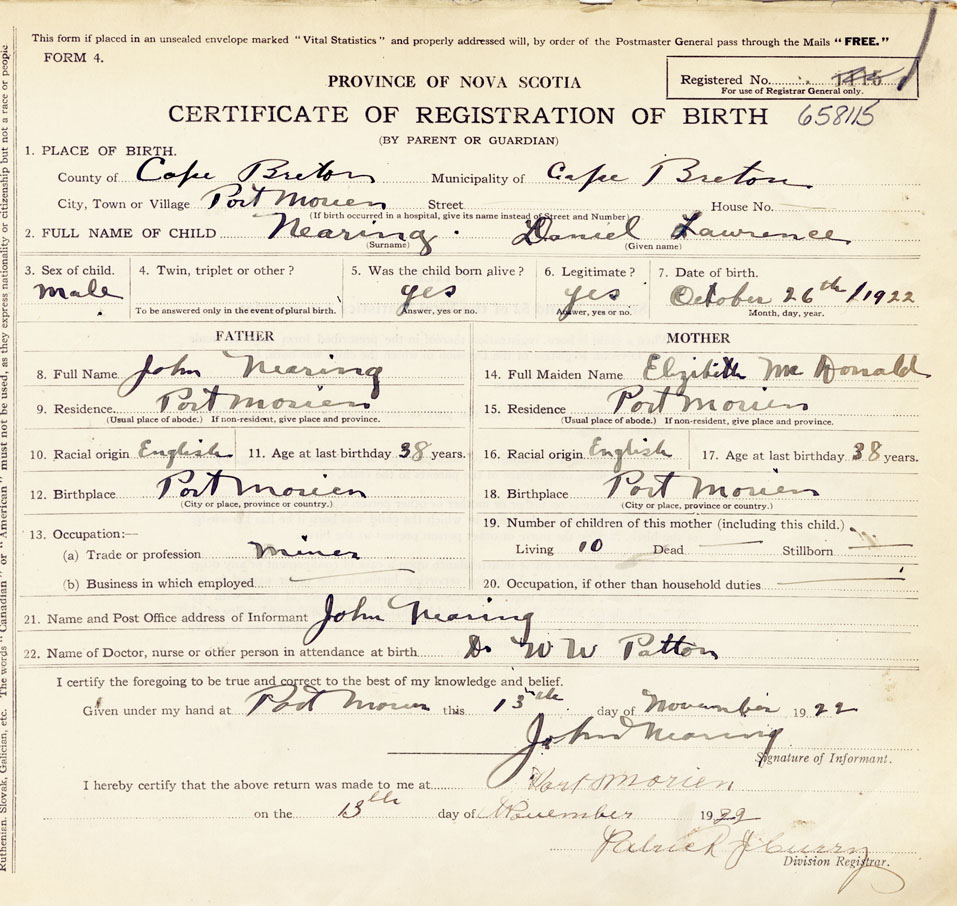 This form if placed in an unsealed envelope marked "Vital Statistics" and properly addressed will, by order of the Postmaster General pass through the Mails "FREE."
FORM 4.
PROVINCE OF NOVA SCOTIA
Registered No.
For use of Registrar General only.
CERTIFICATE OF REGISTRATION OF BIRTH 658115
(BY PARENT OR GUARDIAN)
1. PLACE OF BIRTH.
County of Cape Breton Municipality of Cape Breton
City, Town or Village Port Morien Street House No.
(If birth occurred in a hospital, give its name instead of Street and Number)
2. FULL NAME OF CHILD Nearing Daniel Lawrence
(Surname) (Given name)
3. Sex of child. 4. Twin, triplet or other? 5. Was the child born alive? 6. Legitimate? 7. Date of birth.
Male yes yes October 26th / 1922
To be answered only in the event of plural birth. Answer, yes or no. Answer, yes or no. Month, day, year.
FATHER
8. Full Name John Nearing
9. Residence Port Morien
(Usual place of abode.) If non-resident, give place and province.
10. Racial origin English 11. Age at last birthday 38 years.
12. Birthplace Port Morien
(City or place, province or country.)
13. Occupation:—
(a) Trade or profession miner
(b) Business in which employed
MOTHER
14. Full Maiden Name Elizibeth Mc Donald
15. Residence Port Morien
(Usual place of abode.) If non-resident, give place and province.
16. Racial origin English 17. Age at last birthday 38 years.
18. Birthplace Port Morien
(City or place, province or country.)
19. Number of children of this mother (including this child.)
Living 10 Dead Stillborn
20. Occupation, if other than household duties
21. Name and Post Office address of Informant John Nearing
22. Name of Doctor, nurse or other person in attendance at birth Dr W W Patton
I certify the foregoing to be true and correct to the best of my knowledge and belief.
Given under my hand at Port Morien this 13th day of November 1922
John Nearing
Signature of Informant.
I hereby certify that the above return was made to me at Port Morien
on the 13th day of November 1922
Patrick J Curry
Division Registrar.
Ruthenian, Slovak, Galician, etc. The words "Canadian" or "American" must not be used, as they express nationality or citizenship but not a race or people